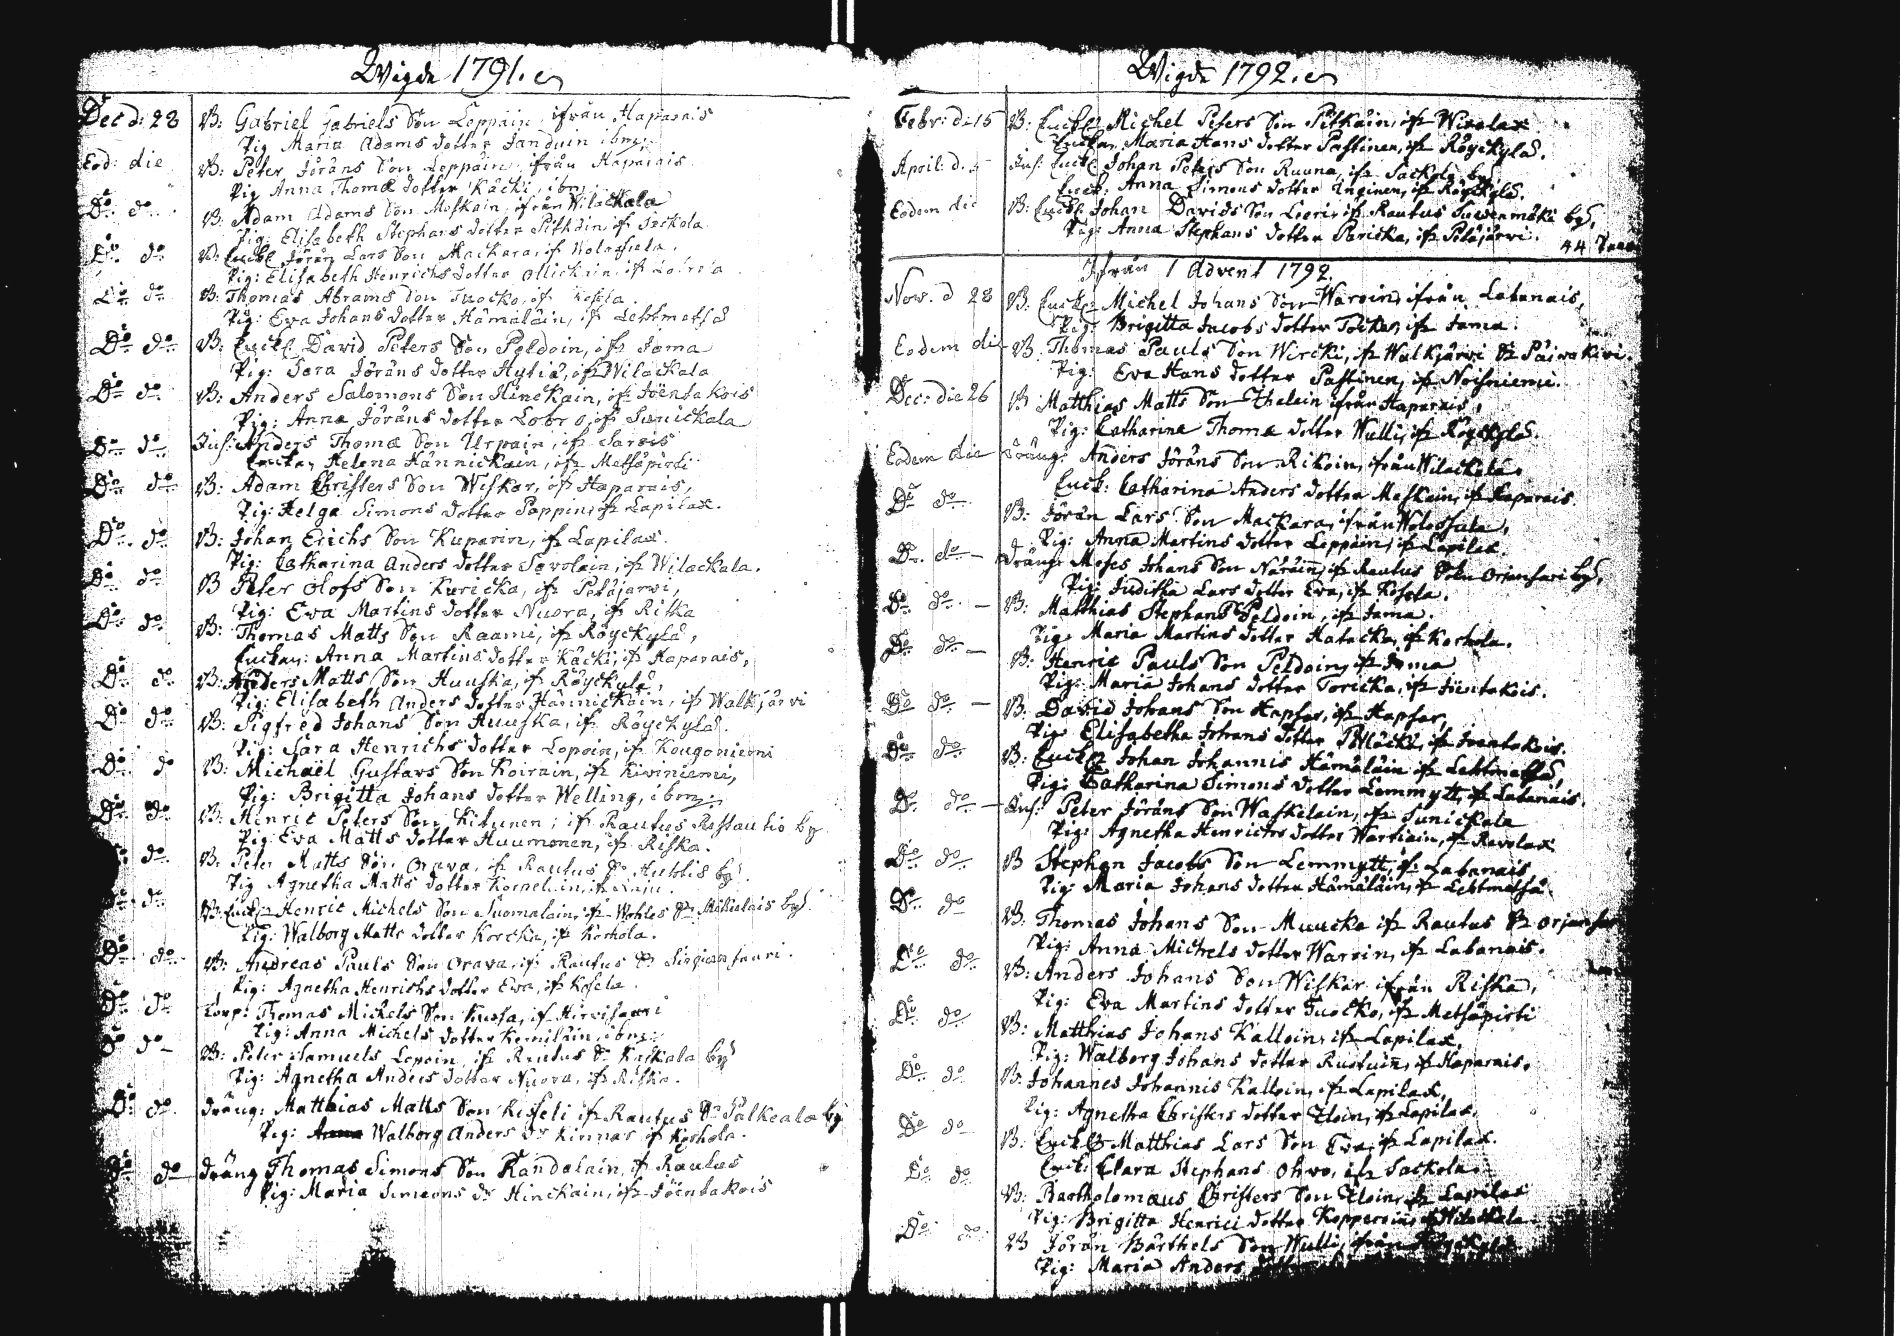 Wigde 1791.
Dec d: 28 B: Gabriel Gabriels Son Leppäin, ifrån Haparais
Pig Maria Adams dotter Janduin ibm:
Eod: die B: Peter Jöräns Son Leppäin, ifrån Haparais
Pig Anna Thomæ dotter Käcki, ibm:
Do do B: Adam Adams Son Meskain, ifrån Wilackala
Pig: Elisabeth Stephans dotter Pitkäin, if Sackola
Do do B: Enckl Jörän Lars Son Mackara, if Wolossula.
Pig: Elisabeth Henrichs dotter
Do do B: Thomas Abrams Son Tuocko, if Kosela.
Pig: Eva Johans dotter Hämäläin, if Lehtmetsä
Do do B: Enckl David Peters Son Peldoin, if Jama
Pig: Sara Jöräns dotter Hytiä, if Wilackala
Do do B: Anders Salomons Son Hinckain, if Jöentakois
Pig: Anna Jöräns dotter if Sunickala
Do do Inh: Anders Thomæ Son Urpain, if Sarois
Enckan Helena Hännickäin, if Metsäpirti
Do do B: Adam Christers Son Wiskar, if Haparais,
Pig: Helga Simons dotter Poppin, if Lapilax.
Do do B: Johan Erichs Son Kuparin, if Lapilax.
Pig: Catharina Anders dotter Savolain, if Wilackala.
Do do B Peter Olofs Son Kuricka, if Petäjärvi,
Pig: Ewa Martins dotter Nuora, if Riska
Do do B: Thomas Matts Son Raami, if Röyckylä,
Enckan: Anna Martins dotter Käcki, if Haparais,
Do do B: Anders Matts Son Huuska, if Röyckylä,
Pig: Elisabeth Anders dotter Hännickäin, if Walkjärvi
Do do B: Sigfred Johans Son Huuska, if Röyckylä.
Pig: Sara Henrichs dotter Lopoin, if Kougoniemi
Do do B: Michaël Gustavs Son Koirain, if Kiviniemi,
Pig: Brigitta Johans dotter Welling, ibm:
Do do B: Henric Peters Son Kitunen, if Rautus by
Pig: Eva Matts dotter Huumonen, if Riska.
do. B: Peter Matts Son Orava, if Rautus Sn Huhtis by.
Pig Agnetha Matts dotter
do B: Enckl Henric Michels Son Suomalain, if Wahles Sn by.
Pig: Walborg Matts dotter Korcka, if Korhola.
Do do B: Andreas Pauls Son Orava, if Rautus Sn
Pig: Agnetha Henrichs dotter Ewa, if Kosela.
Do do Corp: Thomas Michels Son Kussa, if Hirvisaari
Pig: Anna Michels dotter Kemiläin, ibm:
Do do B: Peter Samuels Lopoin, if Rautus Sn by
Pig: Agnetha Anders dotter Nuora, if Riska.
Do do dräng: Matthias Matts Son Kisseli if Rautus Sn Palkeala by
Pig: Walborg Anders dr Kinnar if Korhola.
Do do dräng Thomas Simons Son Randalain, if Rautus
Pig: Maria Simeons dr Hinckain, if Jöentakois
Wigde 1792.
Febr: d: 15 B: Enckl Michel Peters Son Pitkäin, if
Enckan Maria Hans dotter Pastinen, if Röyckylä.
April: d. 5 Inh: Enckl Johan Peters Son Ruuna, if Sackola by
Enck: Anna Simons dotter Inginen, if Röyckylä.
Eodem die B: Enckl Johan Davids Son if Rautus Suwenmäki by,
Pig: Anna Stephans dotter Paricka, if Petäjärvi.
44
Ifrån 1 Advent 1792.
Nov. d 28 B: Enckl Michel Johans Son Warvin, ifrån Labanais,
Pig: Brigitta Jacobs dotter if Jama.
Eodem die B Thomas Pauls Son Wircki, if Walkjärvi Sn Päiwäkivi.
Pig: Eva Hans dotter Pastinen, if Noisniemi.
Dec: die 26 B Matthias Matts Son ifrån Haparais,
Pig: Catharina Thomæ dotter Wulli, if Röyckylä.
Eodem die dräng: Anders Jöräns Son Rikoin, ifrån Wilackala.
Enck: Catharina Anders dotter Meskain, if Haparais.
Do do B: Jörän Lars Son Mackara, ifrån Wolossula,
Pig: Anna Martins dotter Leppäin, if Lapilax.
Do do — dräng: Moses Johans Son Näräin, if Rautus Sokn Orjansari by,
Pig: Juditha Lars dotter Eva, if Kosela.
Do do — B: Matthias Stephans Peldoin, if Jama.
Pig: Maria Martins dotter Hatacka, if Korhola.
Do do — B: Henric Pauls Son Peldoin, if Jama
Pig: Maria Johans dotter Toricka, if Jöentakois.
Do do — B: David Johans Son Hapsar, if Hapsar,
Pig: Elisabetha Johans dotter Pöllöcki, if Joentakois.
Do do B: Enckl Johan Johannis Hämäläin if Lehtmetsä,
Pig: Catharina Simons dotter Lemmytt, if Labanais.
Do do — Inh: Peter Jöräns Son Waskelain, if Sunickala
Pig: Agnetha Henrichs dotter Wartiain, if Ravolax
Do do B Stephan Jacobs Son Lemmytt, if Labanais
Pig: Maria Johans dotter Hämäläin, if Lehtmetsä
Do do B: Thomas Johans Son Muucka if Rautus Sn
Pig: Anna Michels dotter Warvin, if Labanais.
Do do B: Anders Johans Son Wiskar ifrån Riska,
Pig: Eva Martins dotter Tuocko, if Metsäpirti
Do do B: Matthias Johans Kalloin, if Lapilax,
Pig: Walborg Johans dotter Rustuin, if Haparais.
Do do B: Johannes Johannis Kalloin, if Lapilax,
Pig: Agnetha Christers dotter Eloin, if Lapilax.
Do do B: Enckl Matthias Lars Son Eva, if Lapilax.
Enck: Clara Stephans Ohvo, if Sackola.
Do do B: Bartholomæus Christers Son Eloin, if Lapilax
Pig: Brigitta Henrici dotter Kopperoin, if Wilackala
Do do B Jörän Barthels Son Wulli, ifrån
Pig: Maria Anders